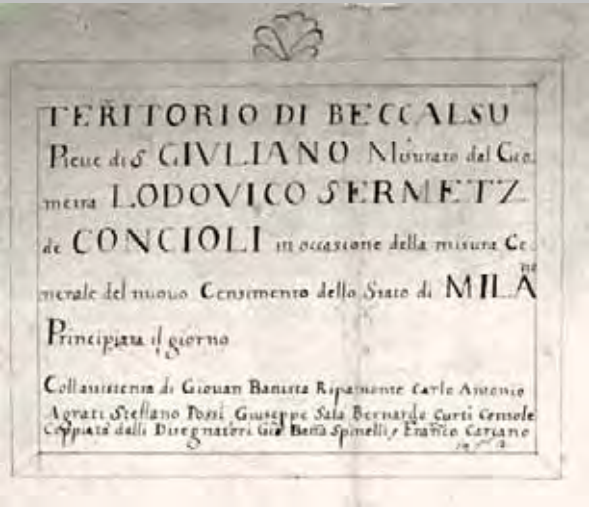 TERITORIO DI BECCALSU
Pieue di S GIVLIANO Misurato dal Geo
metra LODOVICO SERMETZ
de CONCIOLI in occasione della misura Ge
nerale del nuovo Censimento dello Stato di MILA no
Principiata il giorno
Coll assistenza di Giouan Batista Ripamonte Carlo Antonio
Agrati Steffano Possi Giuseppe Sala Bernardo Curti Console
Coppiata dalli Disegnatori Gio Batta Spinelli, e Franco Cariano